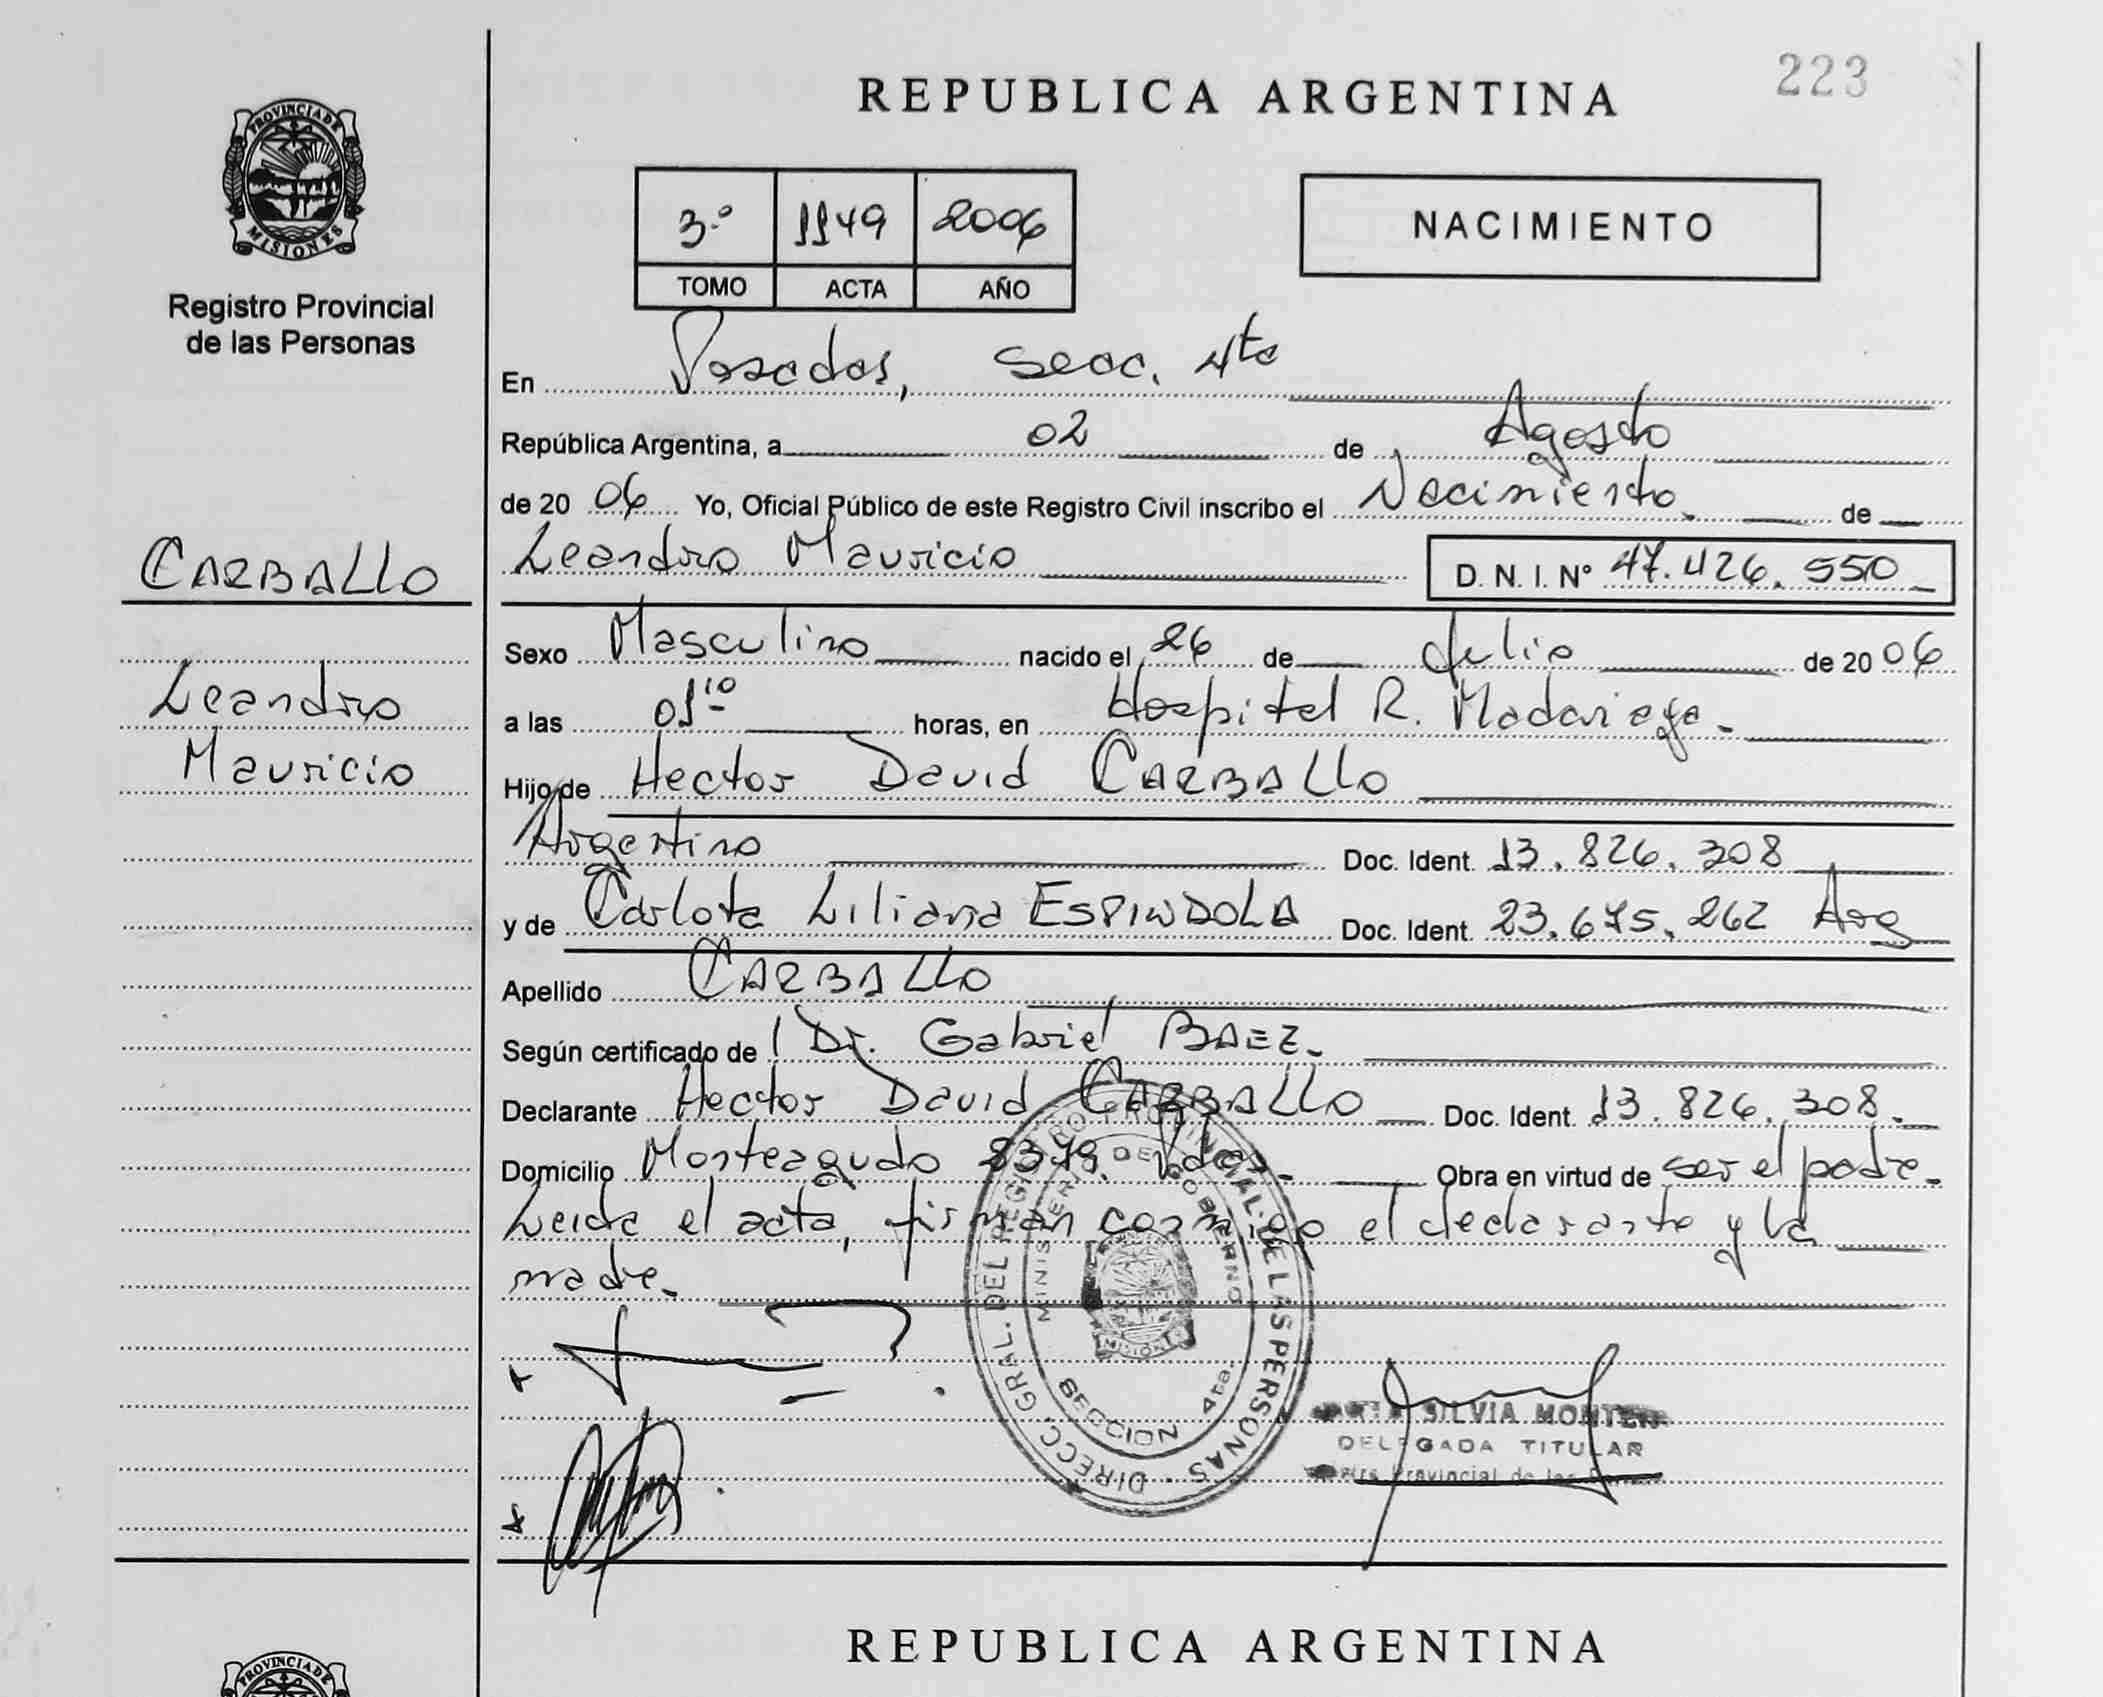 223
REPUBLICA ARGENTINA
PROVINCIA DE
MISIONES
Registro Provincial
de las Personas
3.º 1149 2006
TOMO ACTA AÑO
NACIMIENTO
En Posadas, secc. 4ta
República Argentina, a 02 de Agosto
de 20 06 Yo, Oficial Público de este Registro Civil inscribo el Nacimiento de
CARBALLO
Leandro
Mauricio
Leandro Mauricio D. N. I. Nº 47.426.550
Sexo Masculino nacido el 26 de Julio de 20 06
a las 01 10 horas, en Hospital R. Madariaga
Hijo de Hector David CARBALLO
Argentino Doc. Ident. 13.826.308
y de Carlota Liliana ESPINDOLA Doc. Ident. 23.675.262 Arg
Apellido CARBALLO
Según certificado de Dr. Gabriel BAEZ
Declarante Hector David CARBALLO Doc. Ident. 13.826.308.
Domicilio Monteagudo Obra en virtud de ser el padre.
Leida el acta, firman conmigo el declarante y la
madre.
DIRECC. GRAL. DEL REGISTRO PROVINCIAL DE LAS PERSONAS
MINISTERIO DE GOBIERNO
MISIONES
SECCION 4ta.
SILVIA
DELEGADA TITULAR
Provincial de las
REPUBLICA ARGENTINA
PROVINCIA DE